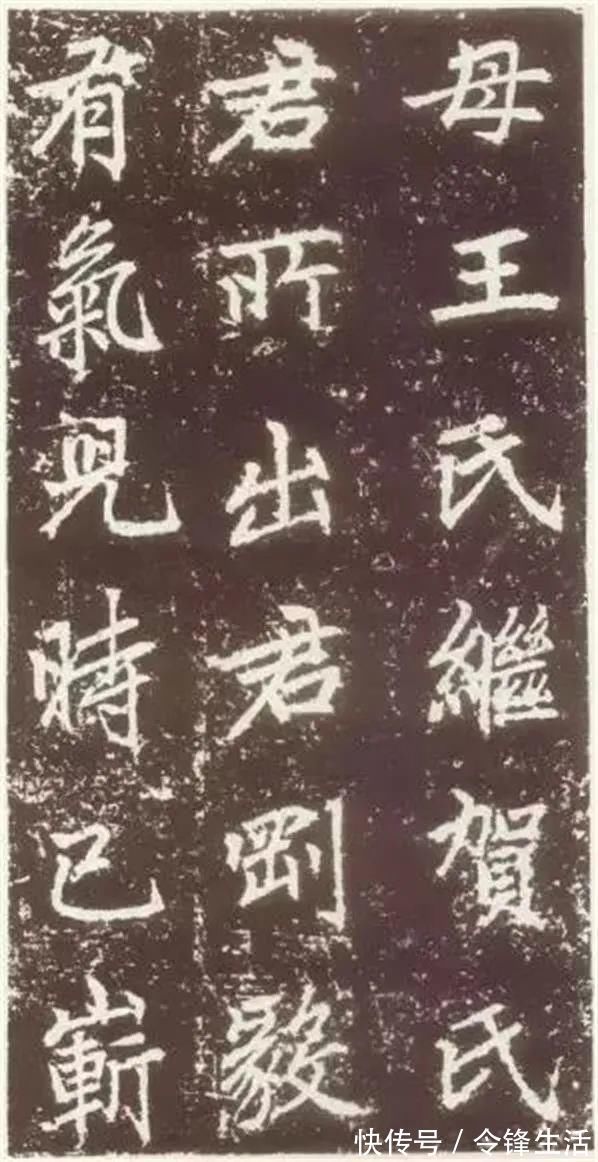 母王氏繼賀氏
君所出君剛毅
有氣兒時已嶄
快传号 / 令锋生活